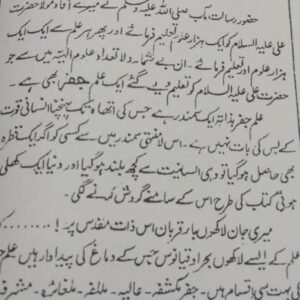 حضور رسالت مآب صلی اللہ علیہ وسلم نے میرے آقا و مولا حضرت
علی علیہ السلام کو ایک ہزار علوم تعلیم فرمائے۔ اور پھر ہر علم سے ایک ایک
ہزار علوم اور تعلیم فرمائے۔ ان بے شمار۔ ولا تعداد علوم الہٰیہ میں سے جو
حضرت علی علیہ السلام کو تعلیم دیئے گئے ایک علم جفر بھی ہے۔
علم جفر بذاتہٖ ایک سمندر ہے جس کی اتھاہ تک پہنچنا انسانی قوت
کے بس کی بات نہیں ہے۔ اس لا منتہی سمندر میں سے کسی کو اگر ایک قطرہ
بھی حاصل ہو گیا تو وہی انسانیت سے کچھ بلند ہو گیا اور دنیا ایک کھلی
ہوئی کتاب کی طرح اس کے سامنے گردش کرنے لگی۔
میری جان لاکھوں بار قربان اس ذات مقدس پر! ........ کہ
علم کے ایسے لاکھوں بحر او قیانوس جس کے دماغ کی پیداوار ہیں علم
بہت سی اقسام ہیں۔ جفر